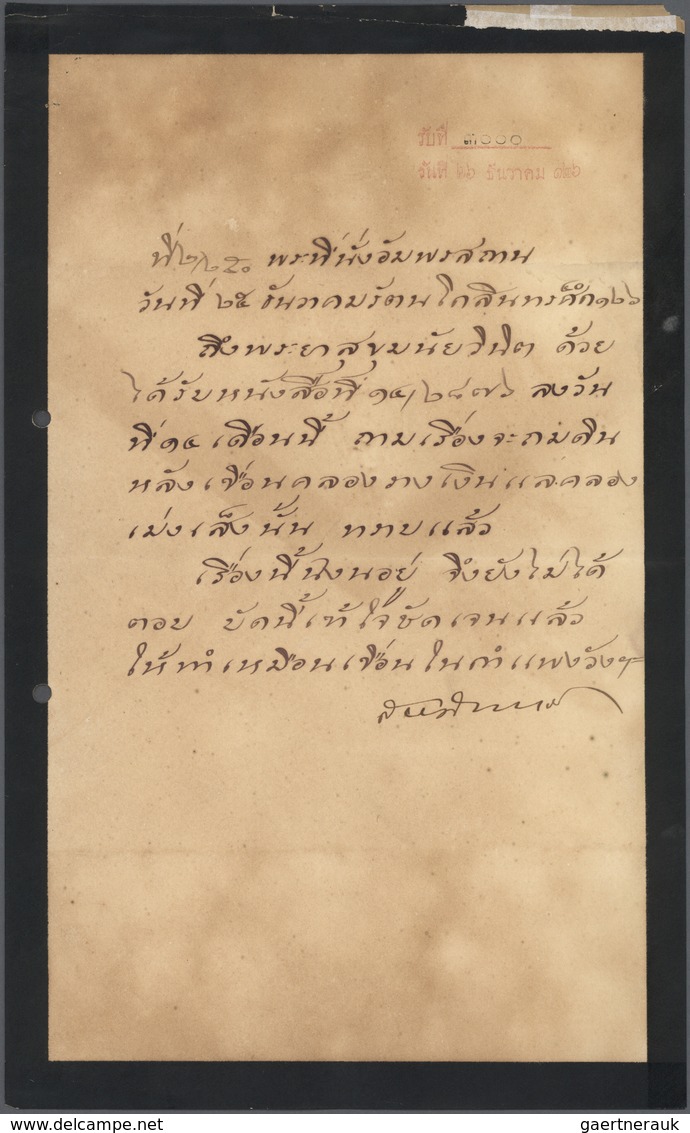 รับที่ ๓๐๐๐
วันที่ ๒๖ ธันวาคม ๑๒๖
ที่ พระที่นั่งอัมพรสถาน
วันที่ ๒๕ ธันวาคมรัตนโกสินทรศ๊ก๑๒๖
ถึงพระยาสุขุมนัยวินิต ด้วย
ได้รับหนังสือที่ ๑๔/๒๘๗๖ ลงวัน
ที่๑๔ เดือนนี้ ถามเรื่องจะถมดิน
หลังเขื่อนคลองวางเงินแลคลอง
เม่งเส็งนั้น ทราบแล้ว
เรื่องนี้นิ่งนอนอยู่ จึงยังไม่ได้
ตอบ บัดนี้เข้าใจชัดเจนแล้ว
ให้ทำเหมือนเขื่อนในกำแพงวังฯ
สยามินทร์
gaertnerauk